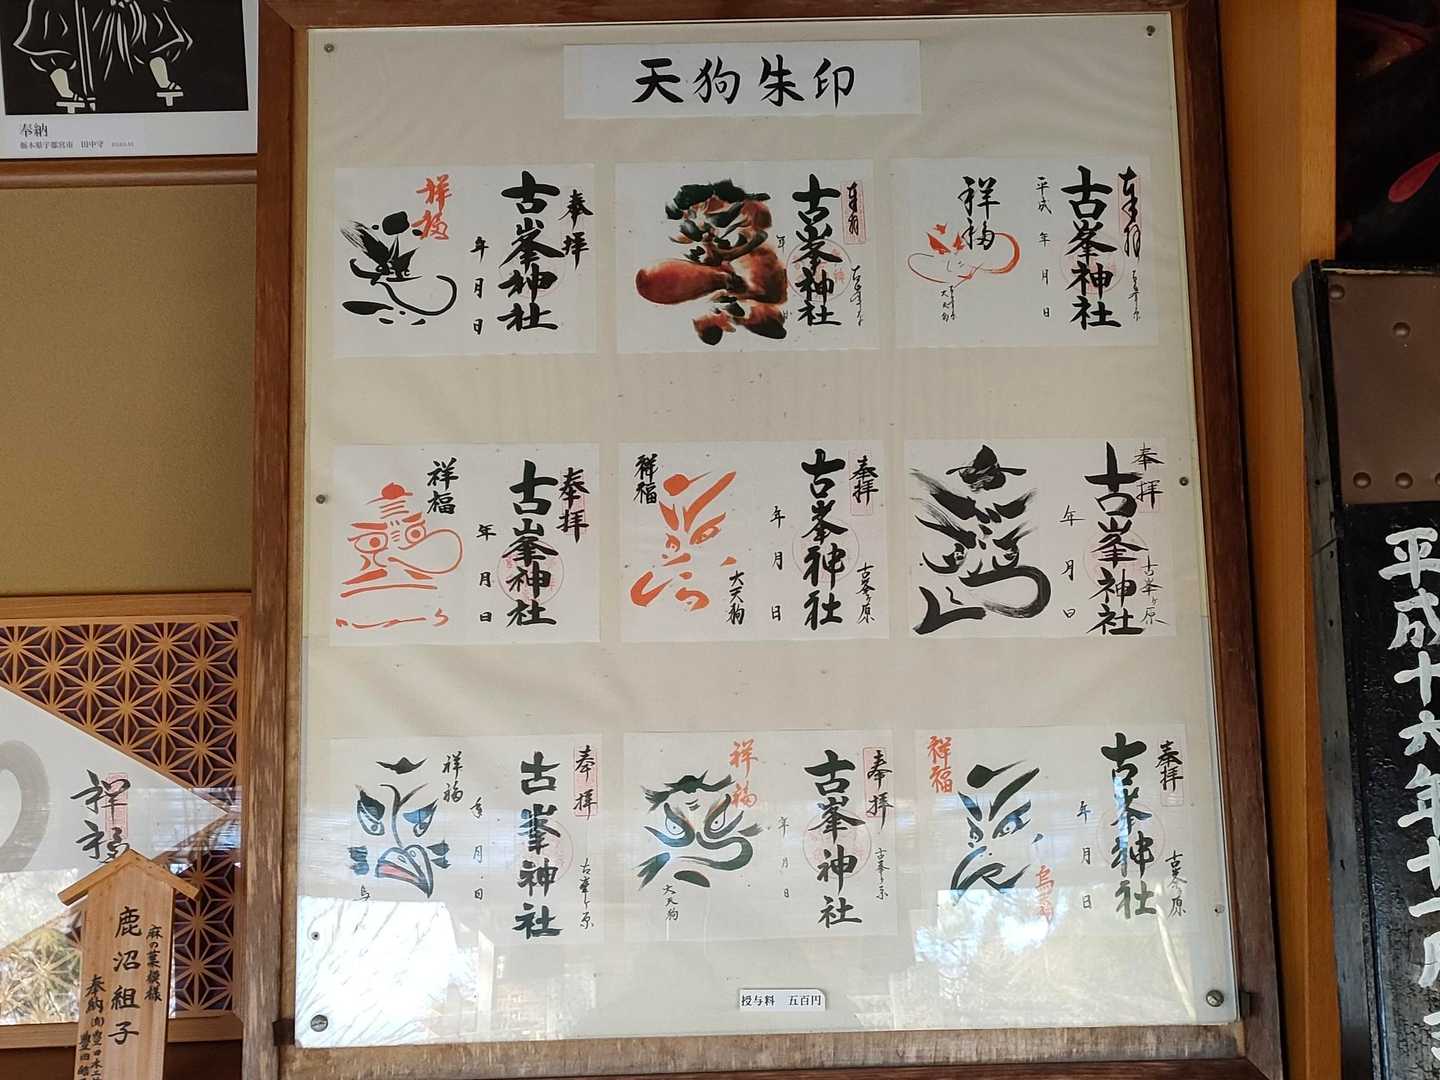 天狗朱印
奉拝
古峯神社
年月日
祥福
奉拝
古峯神社
年
日
奉拝
古峯神社
平成 年 月 日
祥福
大天狗
奉拝
古峯神社
年月日
祥福
奉拝
古峯神社
古峯ヶ原
年月日
大天狗
祥福
奉拝
古峯神社
古峯ヶ原
年月日
奉拝
古峯神社
古峯ヶ原
年月日
祥福
烏
奉拝
古峯神社
年月日
祥福
大天狗
奉拝
古峯神社
古峯ヶ原
年月日
烏
祥福
授与料 五百円
奉納
栃木県宇都宮市 田中守
祥福
麻の葉模様
鹿沼組子
奉納
平成十六年十一月